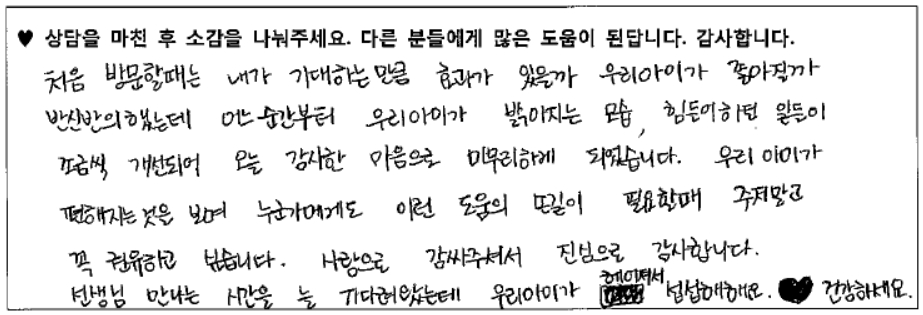 ♥ 상담을 마친 후 소감을 나눠주세요. 다른 분들에게 많은 도움이 된답니다. 감사합니다.
처음 방문할때는 내가 기대하는 만큼 효과가 있을까 우리아이가 좋아질까
반신반의했는데 어느 순간부터 우리아이가 밝아지는 모습, 힘들어하던 일들이
조금씩 개선되어 오늘 감사한 마음으로 마무리하게 되었습니다. 우리 아이가
편해지는것을 보며 누군가에게도 이런 도움의 손길이 필요할때 주저말고
꼭 권유하고 싶습니다. 사랑으로 감싸주셔서 진심으로 감사합니다.
선생님 만나는 시간을 늘 기다려왔는데 우리아이가 헤어져서 섭섭해해요. ♥ 건강하세요.